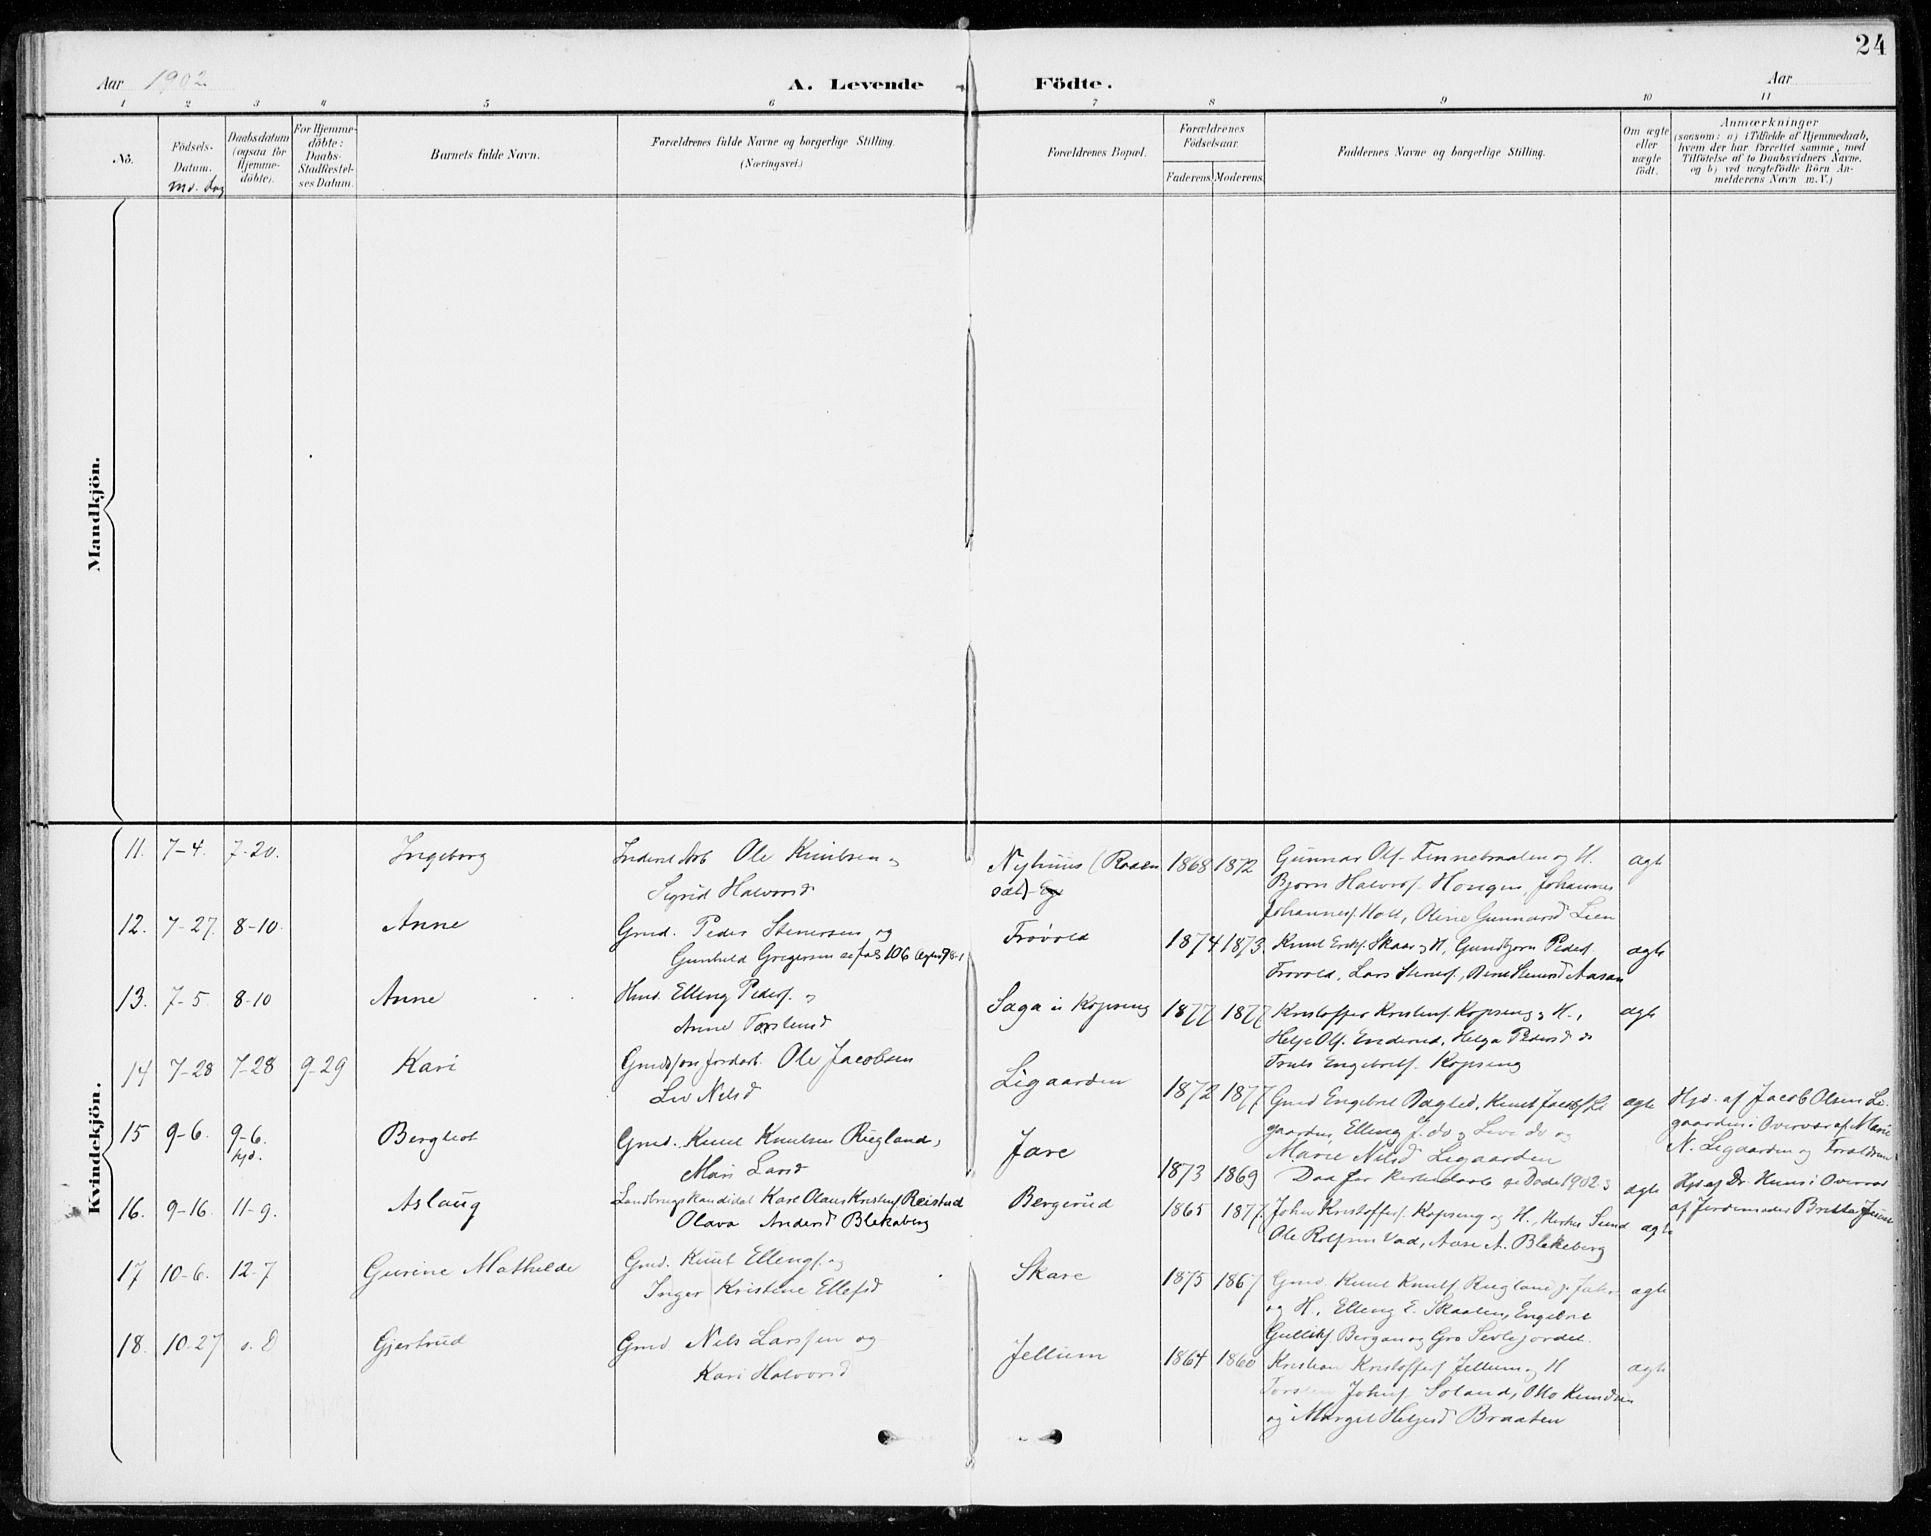 24
Aar 1902 A. Levende Födte. Aar
1 2 3 4 5 6 7 8 9 10 11
No.
Födsels-Datum. Md. Dag
Daabsdatum (ogsaa for Hjemmedöbte).
For Hjemmedöbte: Daabs-Stadfæstelses Datum.
Barnets fulde Navn.
Forældrenes fulde Navne og borgerlige Stilling. (Næringsvei.)
Forældrenes Bopæl.
Forældrenes Födselsaar.
Faderens. Moderens.
Faddernes Navne og borgerlige Stilling.
Om ægte eller uægte födt.
Anmærkninger
(saasom: a) i Tilfælde af Hjemmedaab,
hvem der har forrettet samme, med
Tilföielse af to Daabsvidners Navne,
og b) ved uægtefödte Börn An-
melderens Navn m. V.)
Mandkjön.
Kvindekjön.
11. 7-4. 7-20. Ingeborg
Inderst Arb Ole Knutsen og
Sigrid Halvorsd
Nyhuus (Raaen
sæt)
1868 1872
Gunnar Ols. Finnebraaten og H.
Bjørn Halvors. Haugen, Johannes
Johannes. Moll, Oline Gunnarsd Lien
ægte
12. 7-27. 8-10. Anne
Gmd. Peder Stenersen og
Gunhild Gregersen se fol 106 Ægtev 98-1
Frøvold
1874 1873.
Knut Eriks. Skaar og H, Gunbjørn Peders.
Frøvold, Lars Steners, Anne Stenersd Aasan
ægte
13. 7-5. 8-10 Anne
Hmd. Elling Peders. og
Anne Torstensd
Saga u Kopseng
1877 1877
Kristoffer Kristens. Kopseng og H.,
Helge Ols. Enderud, Helga Pedersd do
Truls Engebrets. Kopseng
ægte
14 7-28 7-28 9-29 Kari
Gmdsøn jordarb. Ole Jacobsen
Liv Nilsd
Ligaarden
1872 1877
Gmd Engebret Dagled, Knut Jacobs Li
gaarden, Elling J. do og Live do og
Marie Nilsd Ligaarden
ægte
Hjd. af Jacob Olsen Li-
gaarden i Overvær af Marie
N. Ligaarden og Forældrene
15 9-6. 9-6. hjd. Bergliot
Gmd. Knut Knutsen Rugland,
Mari Larsd
Jare
1873 1869
Død før Kirkedaab se Døde 1902:3
ægte
Hjd af Dr. Huus i Overvær
af Jordemoder Britha Juus
16. 9-16. 11-9. Aslaug
Landbrugskandidat Karl Olaus Kristens Reistad
Olava Andersd Blekeberg
Bergerud
1865 1877.
John Kristoffers. Kopseng og H., Kirstin Sund
Ole Rolfsen Vad, Aase A. Blekeberg
ægte
17 10-6. 12-7 Gurine Mathilde
Gmd. Knut Ellings. og
Inger Kristine Ellefsd
Skare
1875 1867
Gmd. Knut Knuts Rugland
og H., Elling E. Skaaten, Engebret
Gulliks Bergan og Gro Sevlejordet.
ægte
18. 10-27 s. D Gjertrud
Gmd Nils Larssen og
Kari Halvorsd
Jellum
1864 1860
Kristian Kristoffers Jellum og H
Torsten Johns Soland, Otto Knudsen
og Margit Helgesd Braaten
ægte